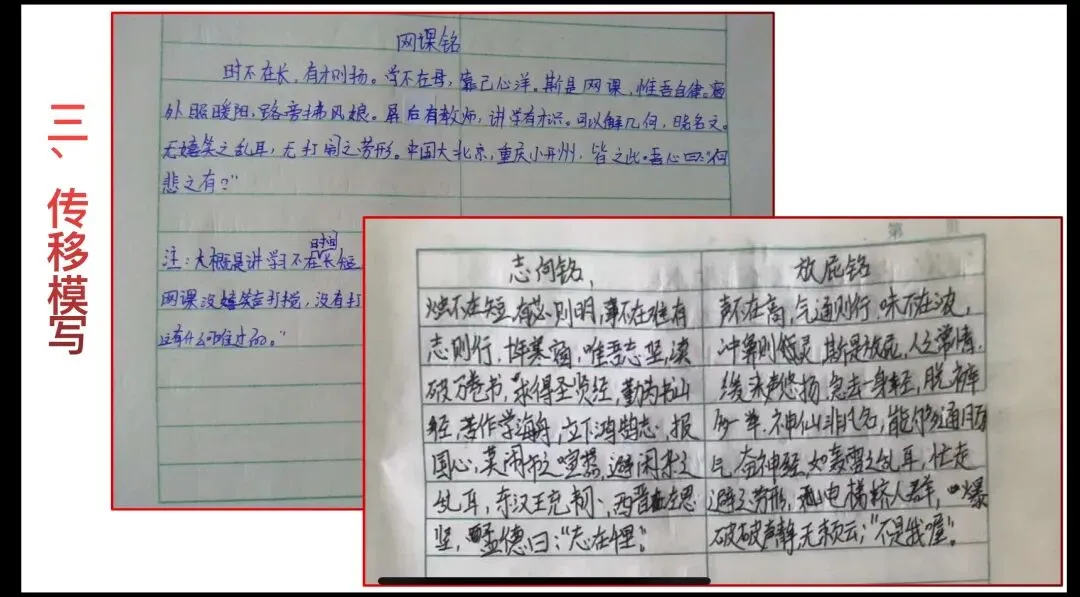 三、传移模写
网课铭
时不在长，有才则扬。学不在母，靠己心洋。斯是网课，惟吾自律。窗
外照暖阳，路旁拂风娘。屏后有教师，讲学有才识。可以解几何，晓名文。
无嬉笑之乱耳，无打闹之劳形。中国大北京，重庆小开州，皆之此。吾心曰：“何
悲之有？”
注：大概是讲学习不在时间长短
网课没嬉笑打搅，没有打
还有什么难过的。”
第 页
志向铭
烛不在短，有芯则明，事不在难有
志则行，十年寒窗，唯吾志坚，读
破万卷书，求得圣贤经，勤为书山
径，苦作学海舟，立下鸿鹄志，报
国心，莫闹书之喧嚣，避闲杂之
乱耳，东汉王充韧、西晋左思
坚，孟德曰：“志在俚”。
放屁铭
声不在高，气通则行，味不在浓，
冲鼻则领灵，斯是放屁，人之常情，
缓来声悠扬，急去一身轻，脱裤
多一举，神仙非凡名，能够通肠
气，奋神经，如轰雷之乱耳，忙走
避之劳形，电梯挤人群，一爆
破破声静，无赖云：“不是我喔”。